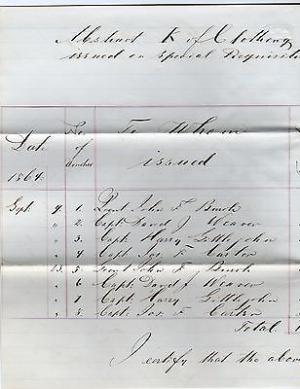 Abstract K of Clothing
issued on Special Requisitio
Date
1864.
No.
of
To Whom
issued
Sept. 9. 1. Lieut John F
" 2. Capt. J Weaver
" 3. Capt. Harry Gettlejohn
" 4. Capt. Jos. F
13. 5. Lieut John F
" 6. Capt. J Weaver
" 7. Capt. Harry Gettlejohn
" 8. Capt. Jos. F
Total
I certify that the above